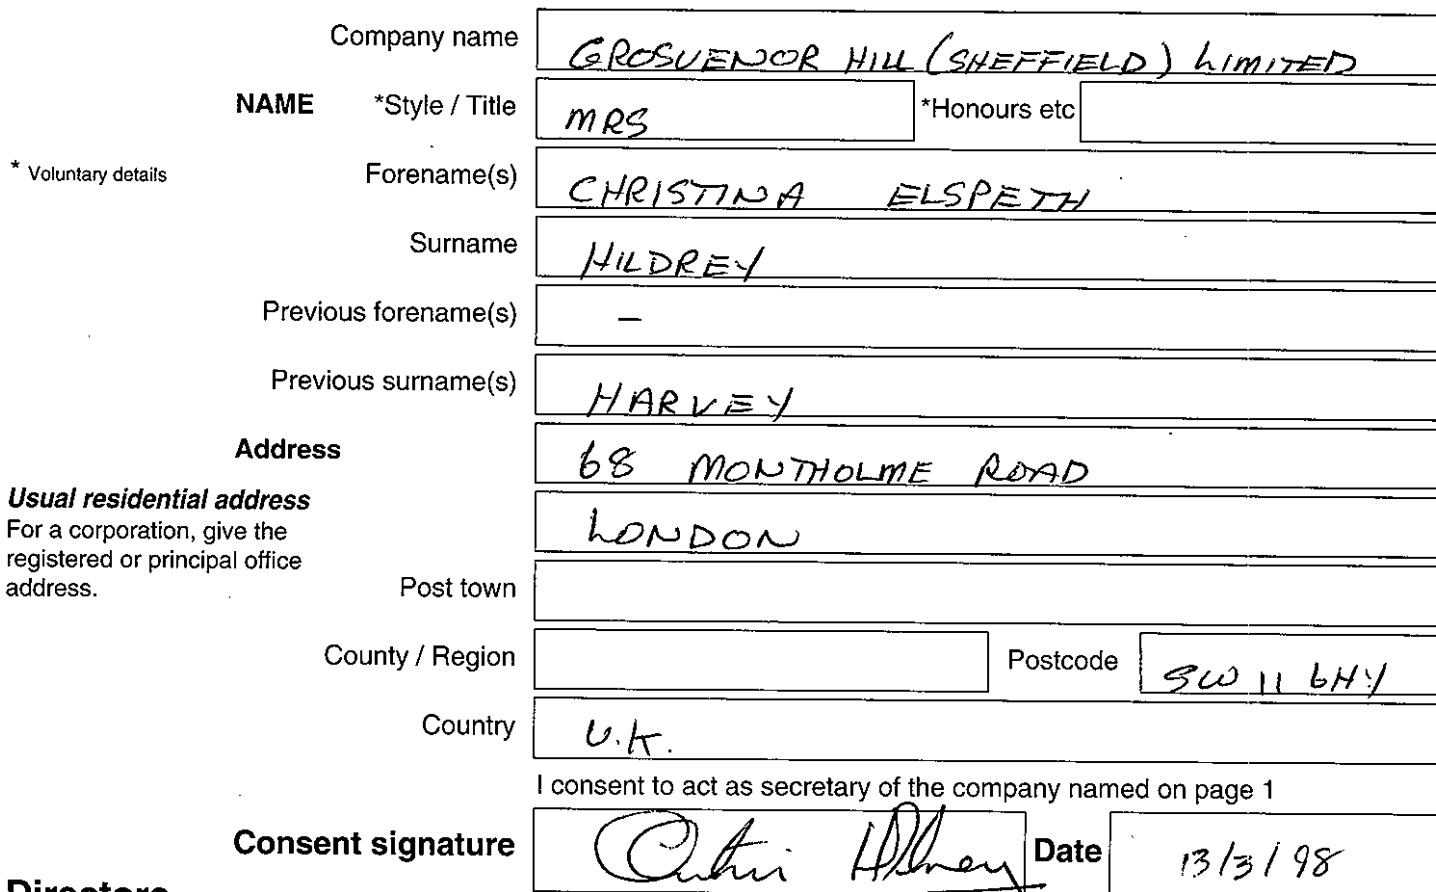 Company name GROSVENOR HILL (SHEFFIELD) LIMITED
NAME *Style / Title MRS *Honours etc
* Voluntary details Forename(s) CHRISTINA ELSPETH
Surname HILDREY
Previous forename(s) –
Previous surname(s) HARVEY
Address 68 MONTHOLME ROAD
Usual residential address LONDON
For a corporation, give the
registered or principal office
address. Post town
County / Region Postcode SW11 6HY
Country U.K.
I consent to act as secretary of the company named on page 1
Consent signature Date 13/3/98
Directors